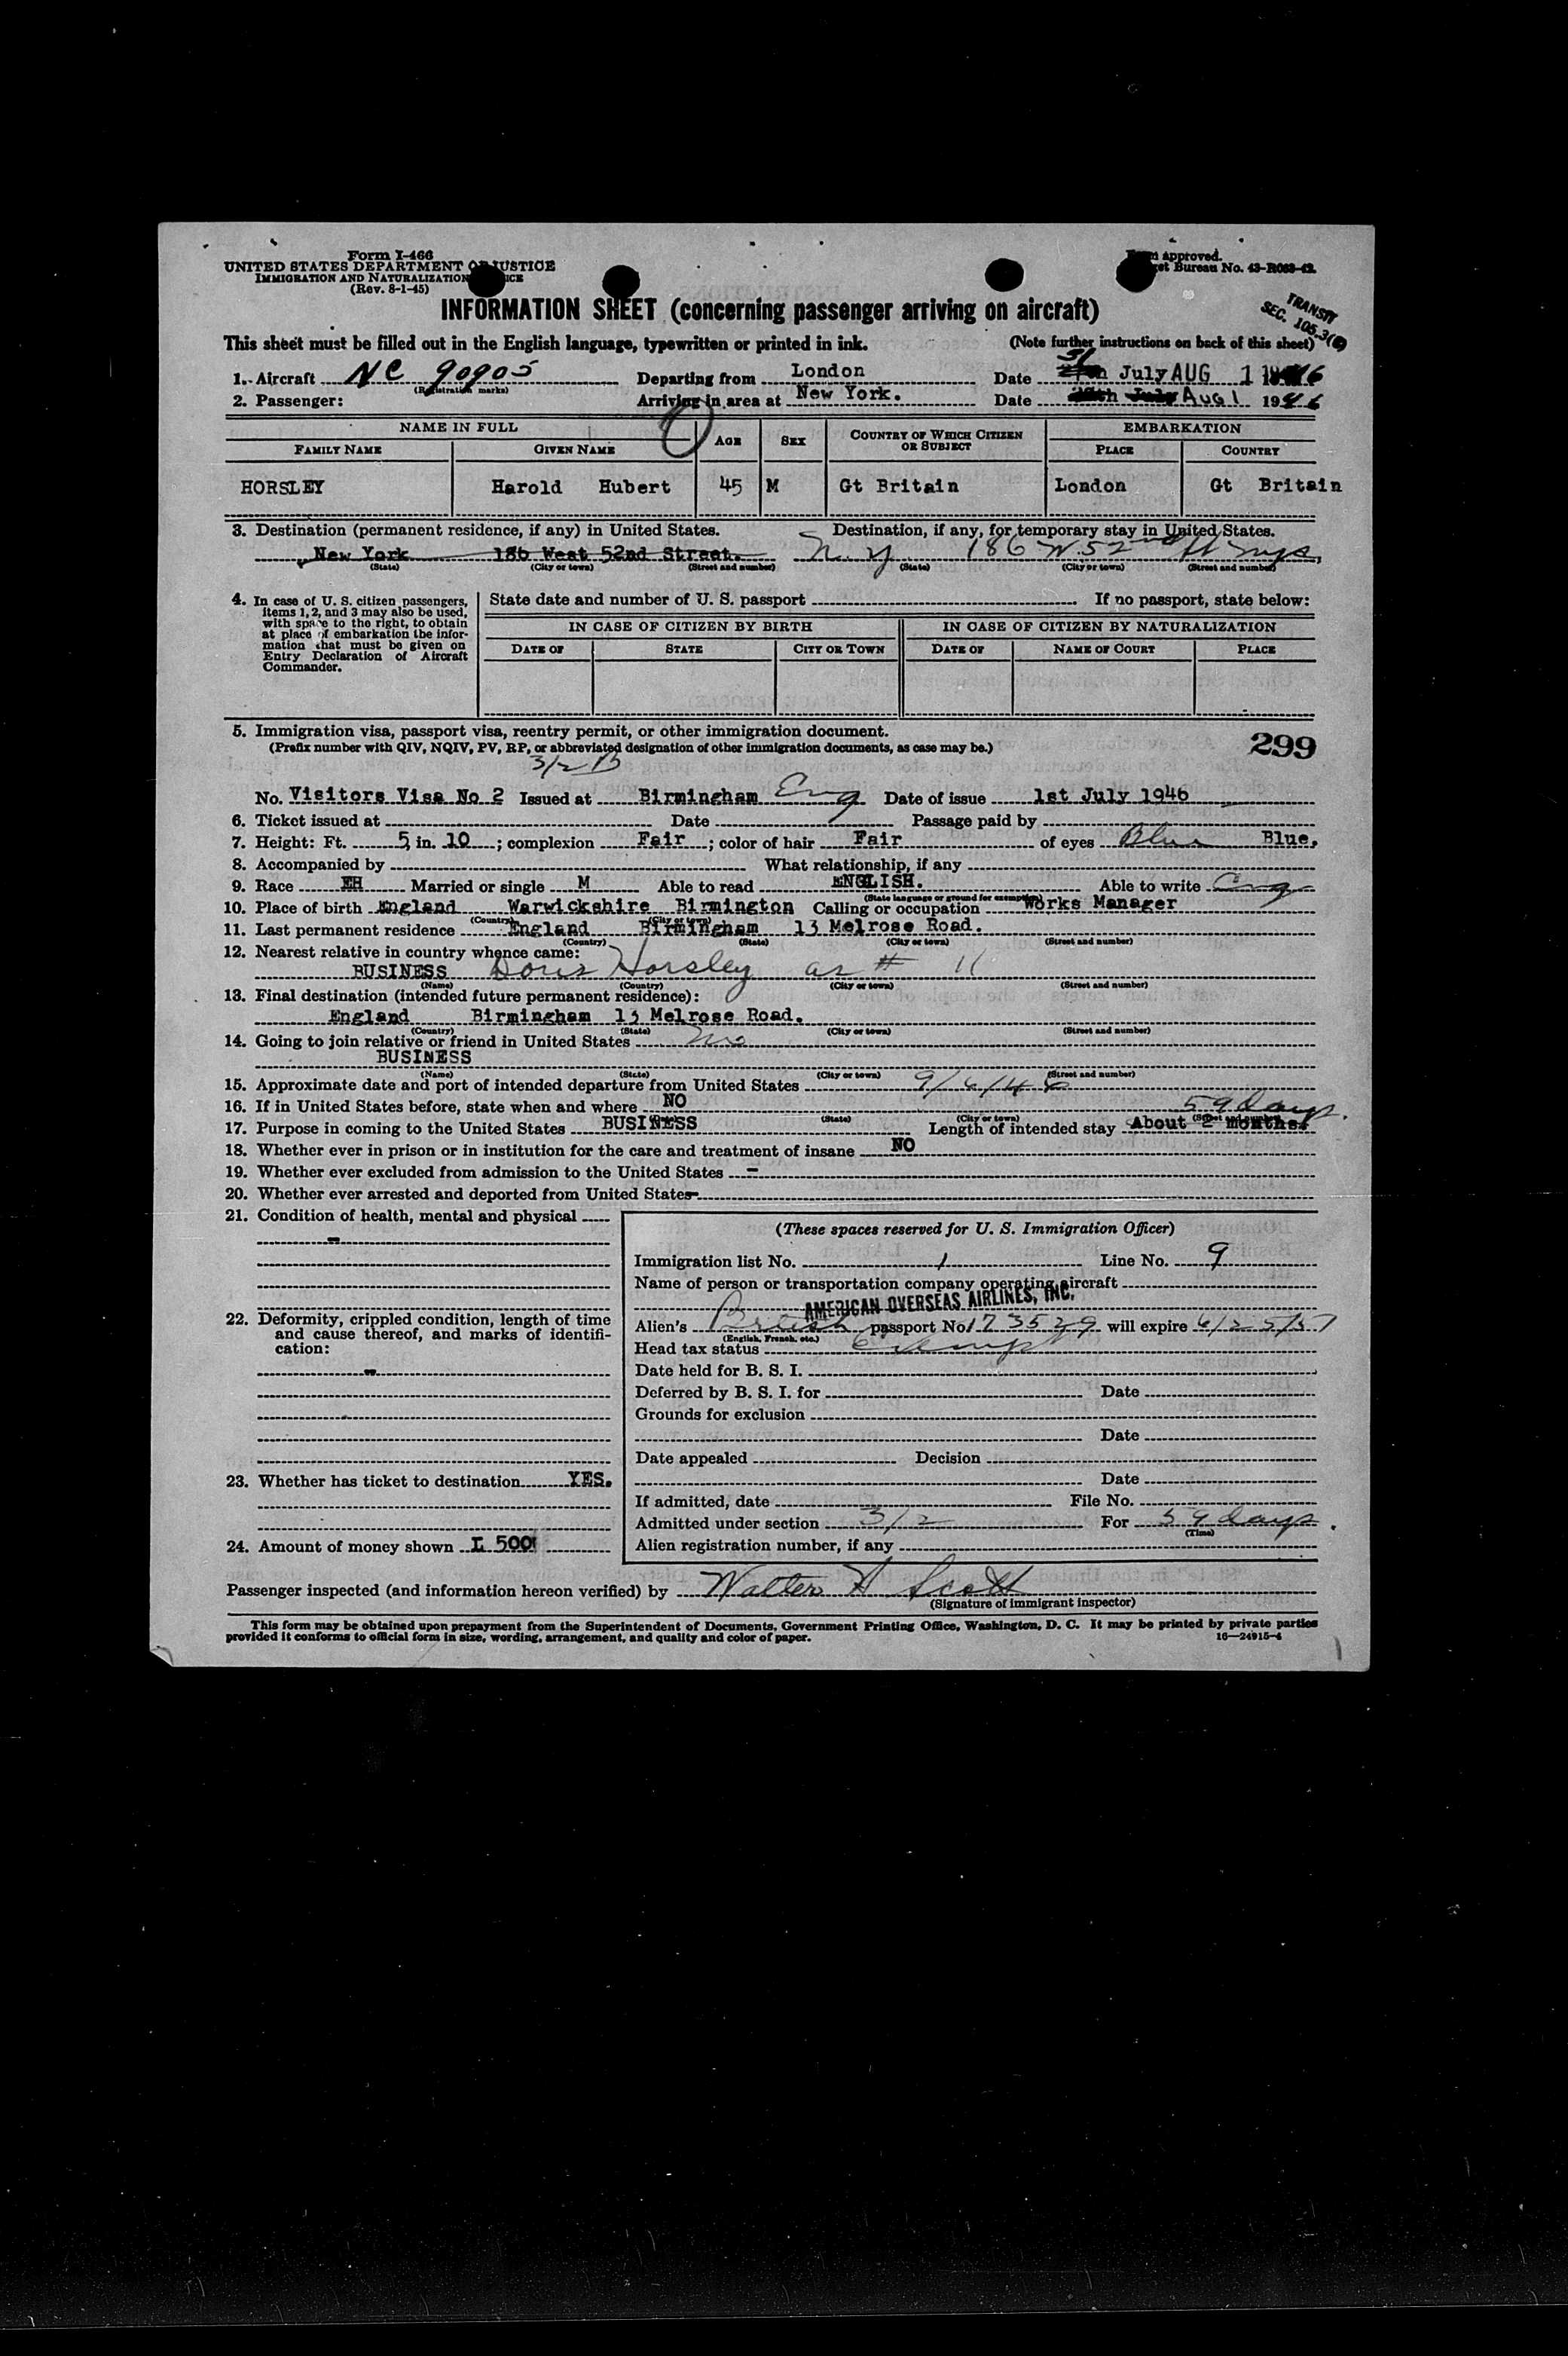 Form I-466
UNITED STATES DEPARTMENT OF JUSTICE
IMMIGRATION AND NATURALIZATION
(Rev. 8-1-45)
approved.
Bureau No. 43-R083-42.
INFORMATION SHEET (concerning passenger arriving on aircraft)
TRANSIT
SEC. 105.3(
This sheet must be filled out in the English language, typewritten or printed in ink. (Note further instructions on back of this sheet)
1. Aircraft NC 90905 Departing from London Date 31 July AUG 1 1946
(Registration marks)
2. Passenger: Arriving in area at New York. Date Aug 1 1946
NAME IN FULL AGE SEX COUNTRY OF WHICH CITIZEN OR SUBJECT EMBARKATION
FAMILY NAME GIVEN NAME PLACE COUNTRY
HORSLEY Harold Hubert 45 M Gt Britain London Gt Britain
3. Destination (permanent residence, if any) in United States. Destination, if any, for temporary stay in United States.
New York 186 West 52nd Street. N.Y 186 W. 52nd St nyc,
(State) (City or town) (Street and number) (State) (City or town) (Street and number)
4. In case of U. S. citizen passengers, items 1, 2, and 3 may also be used, with space to the right, to obtain at place of embarkation the information that must be given on Entry Declaration of Aircraft Commander.
State date and number of U. S. passport If no passport, state below:
IN CASE OF CITIZEN BY BIRTH IN CASE OF CITIZEN BY NATURALIZATION
DATE OF STATE CITY OR TOWN DATE OF NAME OF COURT PLACE
5. Immigration visa, passport visa, reentry permit, or other immigration document.
(Prefix number with QIV, NQIV, PV, RP, or abbreviated designation of other immigration documents, as case may be.)
299
3/2
No. Visitors Visa No 2 Issued at Birmingham Eng Date of issue 1st July 1946
6. Ticket issued at Date Passage paid by
7. Height: Ft. 5 in. 10 ; complexion Fair ; color of hair Fair of eyes Blue Blue.
8. Accompanied by What relationship, if any
9. Race EH Married or single M Able to read ENGLISH. Able to write Eng
(State language or ground for exemption)
10. Place of birth England Warwickshire Birmington Calling or occupation Works Manager
(Country) (City or town)
11. Last permanent residence England Birmingham 13 Melrose Road.
(Country) (State) (City or town) (Street and number)
12. Nearest relative in country whence came:
BUSINESS Doris Horsley as # 11
(Name) (Country) (City or town) (Street and number)
13. Final destination (intended future permanent residence):
England Birmingham 13 Melrose Road.
(Country) (State) (City or town) (Street and number)
14. Going to join relative or friend in United States no
BUSINESS
(Name) (State) (City or town) (Street and number)
15. Approximate date and port of intended departure from United States 9/6/46
16. If in United States before, state when and where NO 59 days.
(State) (City or town) (Street and number)
17. Purpose in coming to the United States BUSINESS Length of intended stay About 2 months.
18. Whether ever in prison or in institution for the care and treatment of insane NO
19. Whether ever excluded from admission to the United States -
20. Whether ever arrested and deported from United States-
21. Condition of health, mental and physical
-
22. Deformity, crippled condition, length of time and cause thereof, and marks of identification:
-
23. Whether has ticket to destination YES.
24. Amount of money shown L 500
(These spaces reserved for U. S. Immigration Officer)
Immigration list No. 1 Line No. 9
Name of person or transportation company operating aircraft
AMERICAN OVERSEAS AIRLINES, INC.
Alien's British passport No 173529 will expire 6/25/57
(English, French, etc.)
Head tax status exempt
Date held for B. S. I.
Deferred by B. S. I. for Date
Grounds for exclusion
Date
Date appealed Decision
Date
If admitted, date File No.
Admitted under section 3/2 For 59 days.
(Time)
Alien registration number, if any
Passenger inspected (and information hereon verified) by Walter H Scott
(Signature of immigrant inspector)
This form may be obtained upon prepayment from the Superintendent of Documents, Government Printing Office, Washington, D. C. It may be printed by private parties
provided it conforms to official form in size, wording, arrangement, and quality and color of paper. 16—24915-4